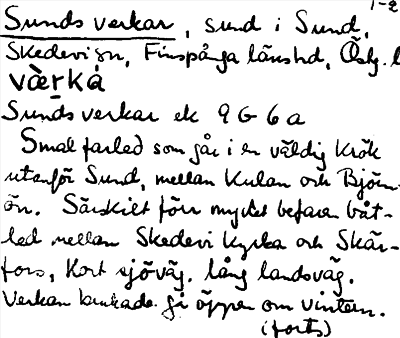 1-2
Sunds verkar, sund i Sund,
Skedevi sn, Finspånga länshd, Östg. l
værka
Sunds verkar ek 9G6a
Smal farled som går i en väldig krök
utanför Sund, mellan Kulan och Björn-
ön. Särskilt förr mycket befaren båt-
led mellan Skedevi kyrka och Skär-
fors, Kort sjöväg, lång landsväg.
Verkan brukade gå öppen om vintern.
(forts)